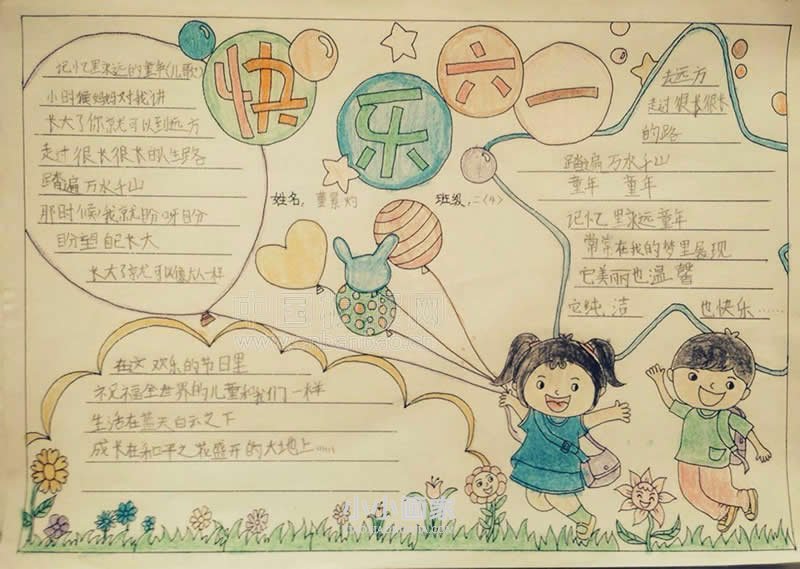 快乐六一
记忆里永远的童年(儿歌)
小时候妈妈对我讲
长大了你就可以到远方
走过很长很长的人生路
踏遍万水千山
那时候我就盼呀盼
盼望自己长大
长大了就可以像大人一样
姓名:
班级:二〈4〉
去远方
走过很长很长
的路
踏遍万水千山
童年 童年
记忆里永远童年
常常在我的梦里展现
它美丽也温馨
它纯洁 也快乐……
在这欢乐的节日里
祝福全世界的儿童和我们一样
生活在蓝天白云之下
成长在和平之花盛开的大地上……
小小画家